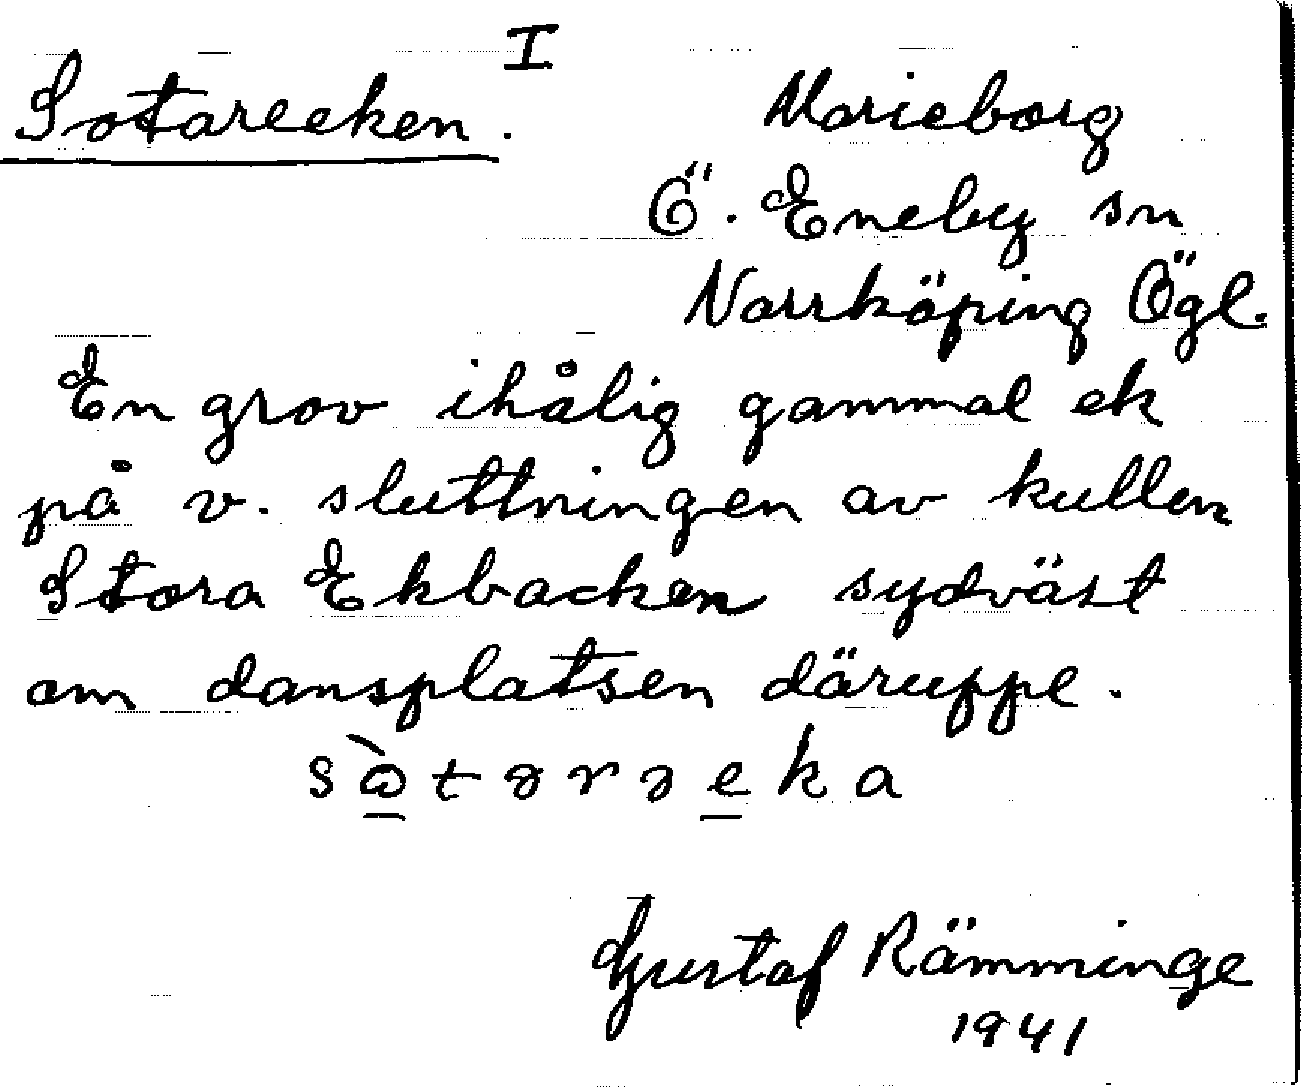 I
Sotareeken. Marieborg
Ö. Eneby sn
Norrköping Ögl.
En grov ihålig gammal ek
på v. sluttningen av kullen
Stora Ekbacken sydväst
om dansplatsen däruppe.
Gustaf Rämminge
1941